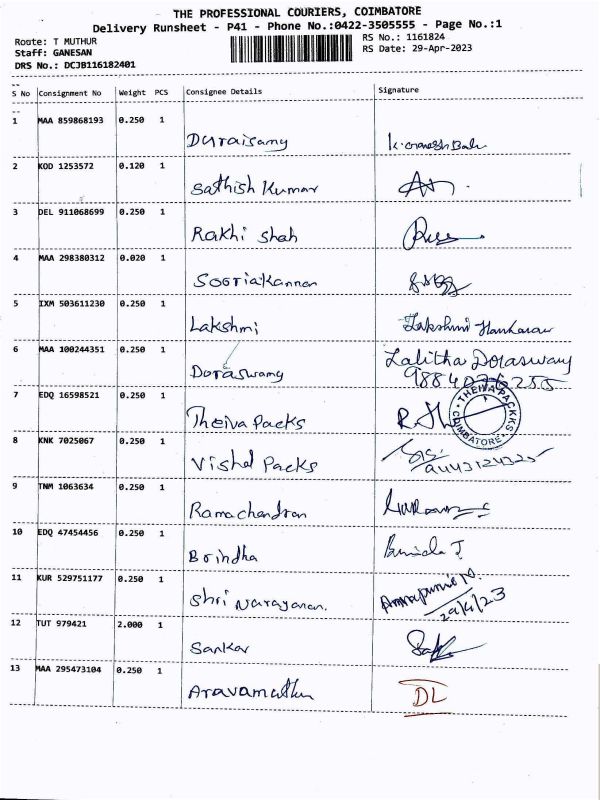 THE PROFESSIONAL COURIERS, COIMBATORE
Delivery Runsheet - P41 - Phone No.:0422-3505555 - Page No.:1
Route: T MUTHUR
Staff: GANESAN
DRS No.: DCJB116182401
RS No.: 1161824
RS Date: 29-Apr-2023
S No Consignment No Weight PCS Consignee Details Signature
1 MAA 859868193 0.250 1
Duraisamy
2 KOD 1253572 0.120 1
Sathish Kumar
3 DEL 911068699 0.250 1
Rakhi Shah
4 MAA 298380312 0.020 1
Sooriakannan
5 IXM 503611230 0.250 1
Lakshmi Lakshmi
6 MAA 100244351 0.250 1
Doraswamy Lalitha Doraswamy
7 EDQ 16598521 0.250 1
Theiva Packs THEIVA PACKKS COIMBATORE
8 KNK 7025067 0.250 1
Vishal Packs
9 TNM 1063634 0.250 1
Ramachandran
10 EDQ 47454456 0.250 1
Brindha
11 KUR 529751177 0.250 1
Shri Narayanan. 29/4/23
12 TUT 979421 2.000 1
Sankar
13 MAA 295473104 0.250 1
Aravamuthan DL